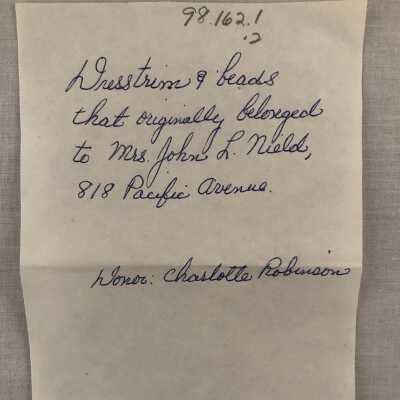 98.162.1
.2
Dresstrim & beads
that originally belonged
to Mrs. John L. Nield,
818 Pacific Avenue.
Donor: Charlotte Robinson